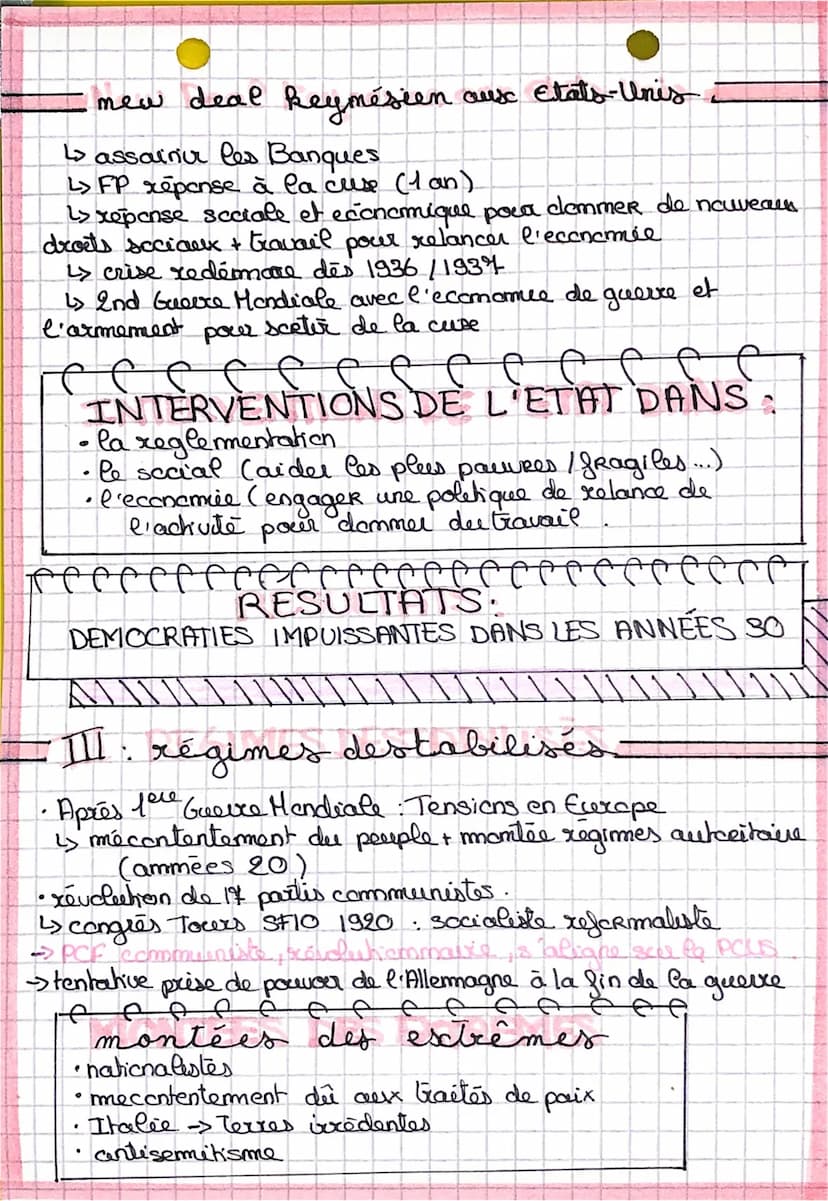 new deal Keynésien aux Etats-Unis
↳ assainir les Banques
↳ FP réponse à la crise (1 an)
↳ réponse sociale et économique pour donner de nouveaux
droits sociaux + travail pour relancer l'économie
↳ crise redémare dès 1936 / 1937
↳ 2nd Guerre Mondiale avec l'economie de guerre et
l'armement pour sortir de la crise
INTERVENTIONS DE L'ETAT DANS :
• la reglementation
• le social (aider les plus pauvres / fragiles...)
• l'economie (engager une politique de relance de
l'activité pour donner du travail .
RESULTATS:
DEMOCRATIES IMPUISSANTES DANS LES ANNÉES 30
III : régimes destabilisés
• Après 1ère Guerre Mondiale : Tensions en Europe
↳ mécontentement du peuple + montée régimes autoritaire
(années 20)
• révolution de 17 partis communistes.
↳ congrès Tours SFIO 1920 : socialiste reformaliste
→ PCF communiste, révolutionnaire, s'aligne sur le PCUS
→ tentative prise de pouvoir de l'Allemagne à la fin de la guerre
montées des extrêmes
• nationalistes
• mecontentement dû aux traités de paix
• Italie → Terres irrédentes
• antisemitisme